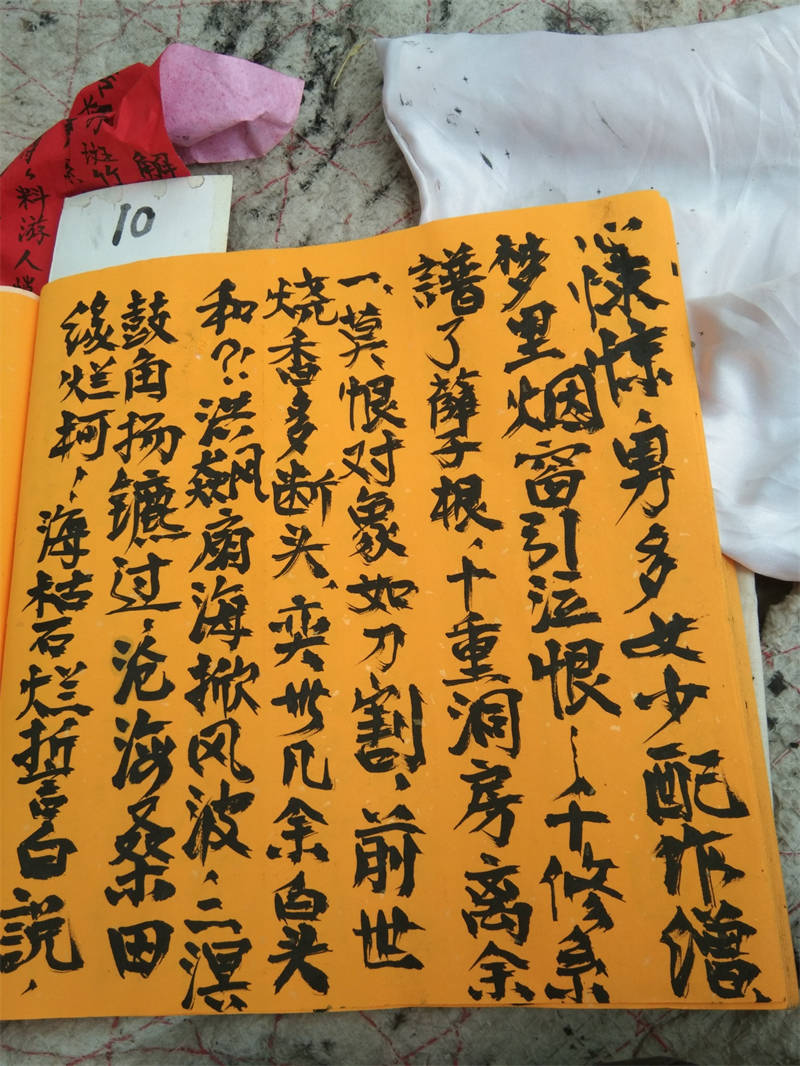 心悚惊、男多女少配作僧
梦里烟窗引泣恨、十修系
谱了孽子根、十重洞房离余
一、莫恨对象如刀割、前世
烧香多断头、奕世几余白头
和?!洪飙扇海掀风波、二溟
鼓角扬镳过、沧海桑田
缘烂柯、海枯石烂哲言白说、
10
解
斑竹
料游人